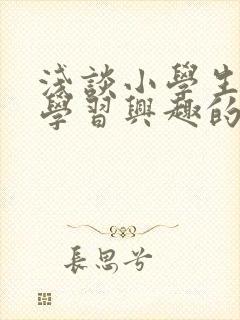 淺談小學生
學習興趣的
長思兮